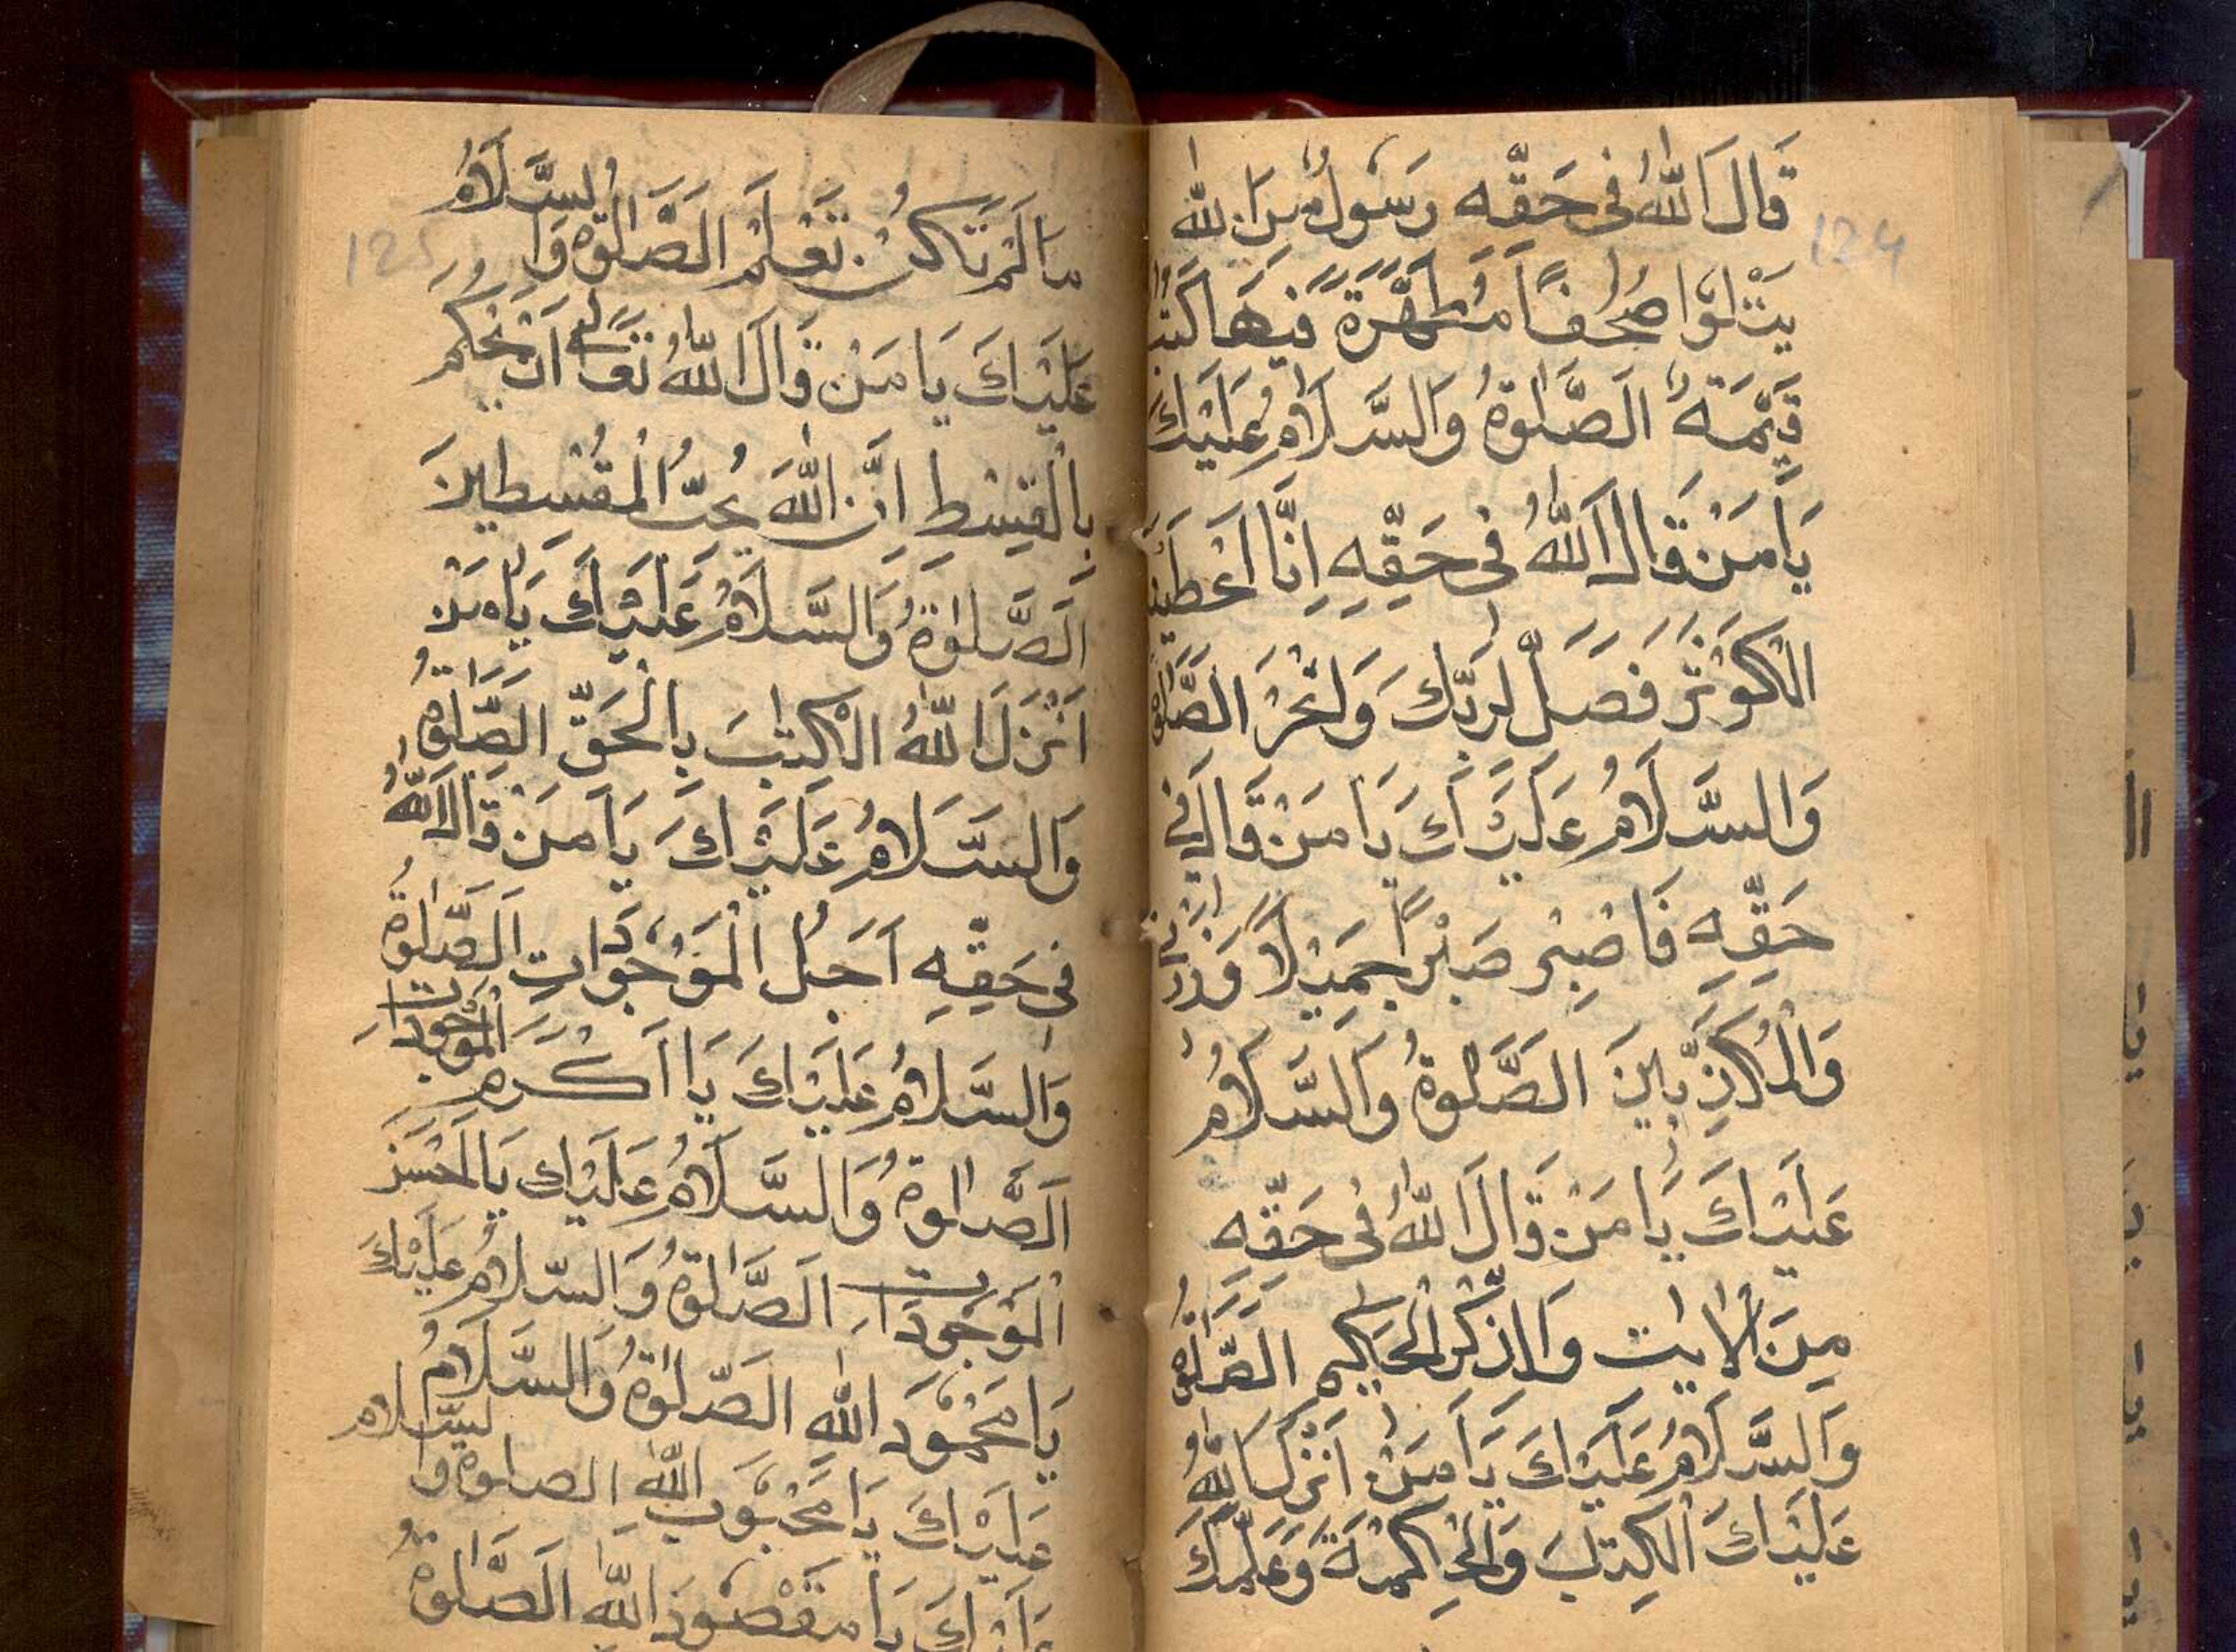 124
قَالَ اللّٰهُ فِى حَقِّه رَسُولٌ مِنَ اللّٰه
يَتْلُوا صُحُفًا مُطَهَّرَةً فِيهَا كُتُبٌ
قَيِّمَةٌ الصَّلٰوةُ وَالسَّلَامُ عَلَيْكَ
يَا مَنْ قَالَ اللّٰهُ فِى حَقِّهِ اِنَّا اَعْطَيْنٰ
الْكَوْثَرَ فَصَلِّ لِرَبِّكَ وَانْحَرْ الصَّلٰوةُ
وَالسَّلَامُ عَلَيْكَ يَا مَنْ قَالَ فِى
حَقِّهِ فَاصْبِرْ صَبْرًا جَمِيْلًا وَذَرْنِى
وَالْمُكَذِّبِينَ الصَّلٰوةُ وَالسَّلَامُ
عَلَيْكَ يَا مَنْ قَالَ اللّٰهُ فِى حَقِّه
مِنَ الْاٰيٰتِ وَالذِّكْرِ الْحَكِيْمِ الصَّلٰوةُ
وَالسَّلَامُ عَلَيْكَ يَا مَنْ اَنْزَلَ اللّٰهُ
عَلَيْكَ الْكِتٰبَ وَالْحِكْمَةَ وَعَلَّمَكَ
125
مَا لَمْ تَكُنْ تَعْلَمْ الصَّلٰوةُ وَالسَّلَامُ
عَلَيْكَ يَا مَنْ قَالَ اللّٰهُ تَعَالٰى اَنْ تَحْكُمَ
بِالْقِسْطِ اِنَّ اللّٰهَ يُحِبُّ الْمُقْسِطِينَ
اَلصَّلٰوةُ وَالسَّلَامُ عَلَيْكَ يَا مَنْ
اَنْزَلَ اللّٰهُ الْكِتٰبَ بِالْحَقِّ الصَّلٰوةُ
وَالسَّلَامُ عَلَيْكَ يَا مَنْ قَالَ اللّٰهُ
فِى حَقِّهِ اَجَلُ الْمَوْجُوَدَاتِ اَلصَّلٰوةُ
وَالسَّلَامُ عَلَيْكَ يَا اَكْرَمَ الْمَوْجُودَاتِ
اَلصَّلٰوةُ وَالسَّلَامُ عَلَيْكَ يَا اَحْسَنَ
الْمَوْجُودَاتِ اَلصَّلٰوةُ وَالسَّلَامُ عَلَيْكَ
يَا مَحْمُوَد اللّٰهِ الصَّلٰوةُ وَالسَّلَامُ
عَلَيْكَ يَا مَحْبُوَب اللّٰهِ الصلوة والسّلام
عَلَيْكَ يَا مَقْصُوْدَ اللّٰهِ الصَّلٰوةُ